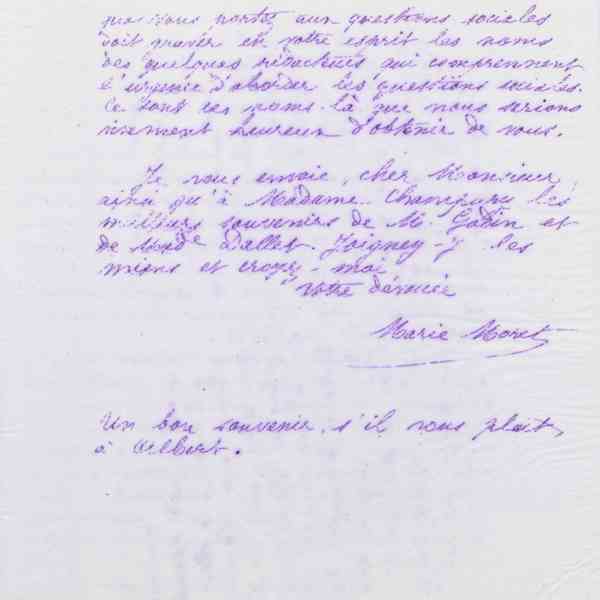 que vous portez aux questions sociales
doit graver en votre esprit les noms
des quelques rédacteurs qui comprennent
l'urgence d'aborder les questions sociales.
Ce sont ces noms-là que nous serions
vivement heureux d'obtenir de vous.
Je vous envoie, cher Monsieur,
ainsi qu'à Madame Champury les
meilleurs souvenirs de M. Godin et
de Mme Dallet. Joignez-y les
miens et croyez-moi
Votre dévouée
Marie Moret
Un bon souvenir, s'il vous plait,
à Albert.